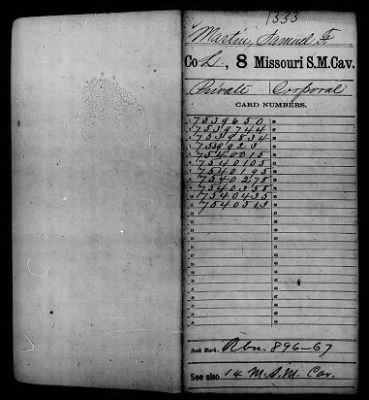 1333
Martin, Samuel F.
Co L, 8 Missouri S.M.Cav.
Private Corporal
CARD NUMBERS.
7539650
7539744
7539834
7539923
7540015
7540105
7540195
7540278
7540358
7540435
7540513
Book Mark: Abn. 896-67
See also 14 M.S.M. Cav.